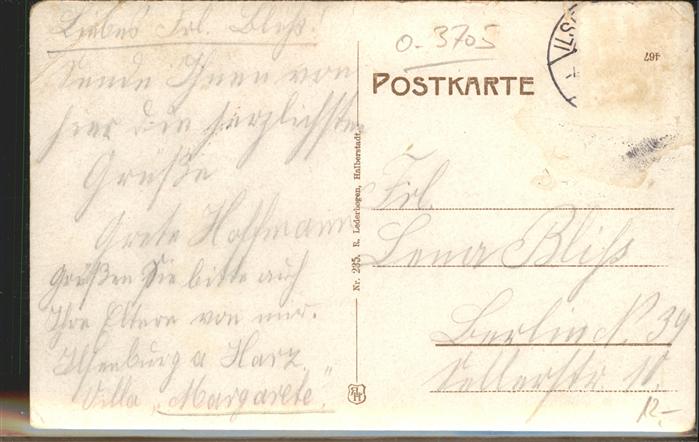 Liebes Frl. Bliß!
Sende Ihnen von
hier die herzlichsten
Grüße
Grete Hoffmann
Grüßen Sie bitte auch
Ihre Eltern von mir.
Ilsenburg a Harz.
Villa „Margarete."
Nr. 235. R. Lederbogen, Halberstadt.
o-3705
497
POSTKARTE
Frl.
Lena Bliß
Berlin N. 39
Sellerstr. 10.
12,-